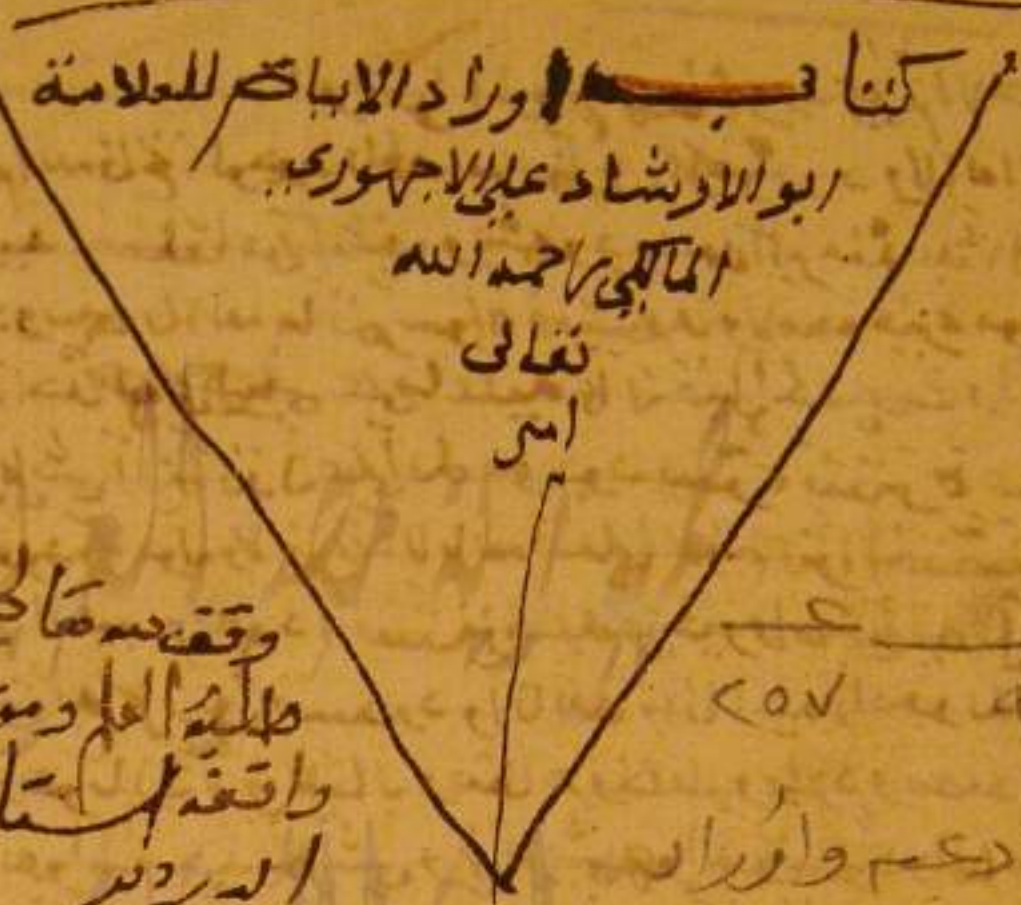 كتاب اوراد الاباة للعلامة
ابو الارشاد علي الاجهوري
المالكي رحمه الله
تعالى
امين
وقف لله تعالى
طلبة العلم
الدردير
٢٥٧
وأوراد